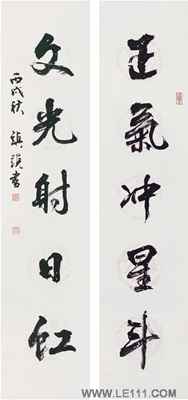 正氣冲星斗
文光射日虹
丙戌秋
書
WWW.LE111.COM